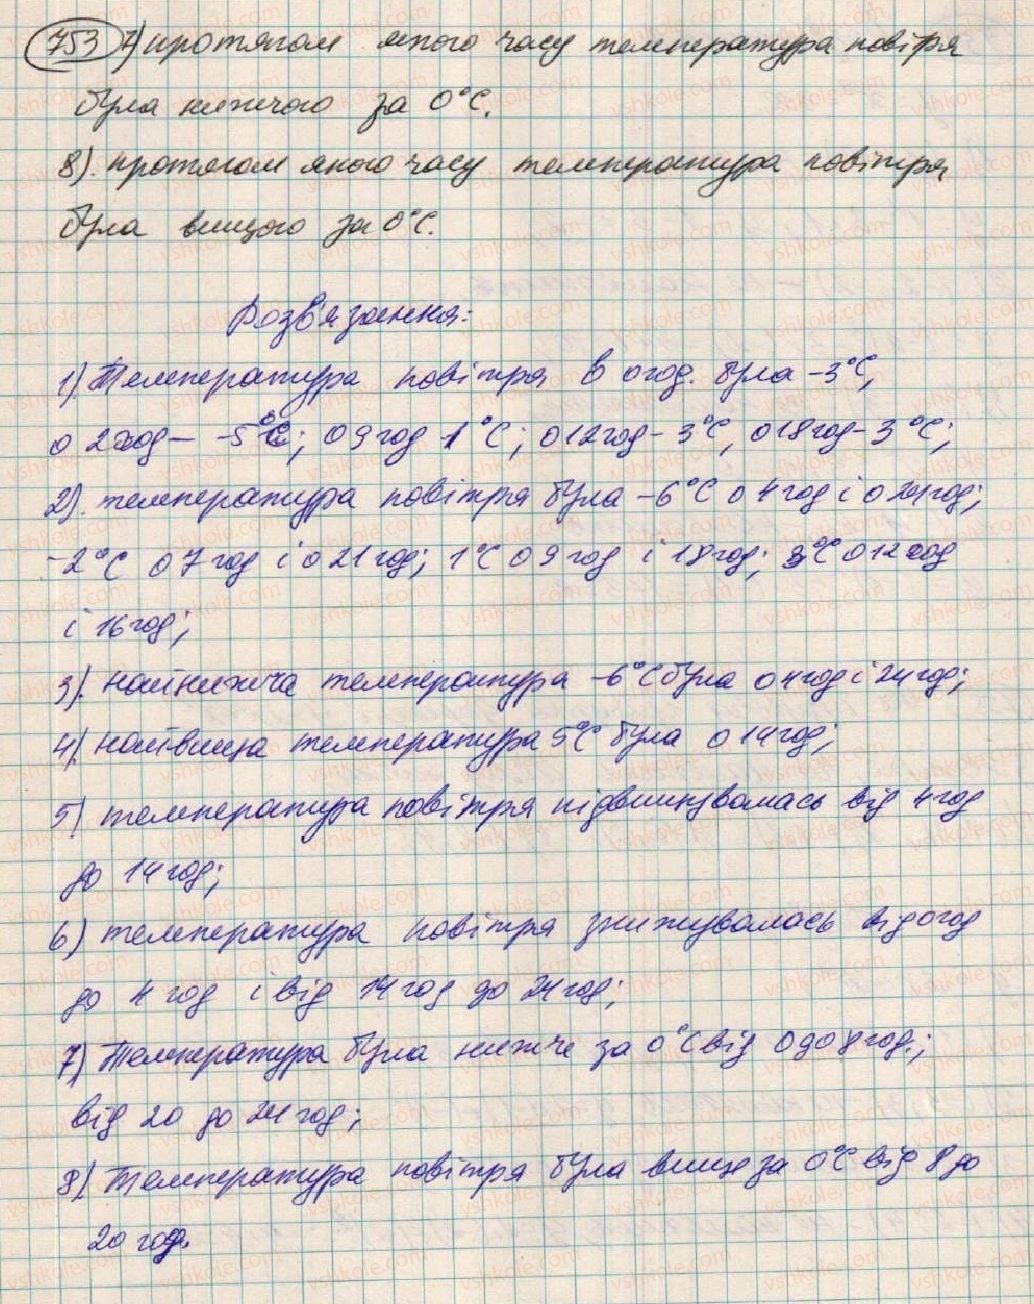 753 7) протягом якого часу температура повітря
була нижчою за 0°C.
8). протягом якого часу температура повітря
була вищою за 0°C.
Розв'язання:
1) Температура повітря в 0 год. була -3°C,
о 2 год – -5°C; о 9 год 1°C; о 12 год - 3°C, о 18 год - 3°C;
2). температура повітря була -6°C о 4 год і о 24 год;
-2°C о 7 год і о 21 год; 1°C о 9 год і 19 год; 3°C о 12 год
і 16 год;
3). найнижча температура -6°C була о 4 год і 24 год;
4). найвища температура 5°C була о 14 год;
5) температура повітря підвищувалась від 4 год
до 14 год;
6) температура повітря знижувалась від 0 год
до 4 год і від 14 год до 24 год;
7) Температура була нижче за 0°C від 0 до 8 год.;
від 20 до 24 год;
8) Температура повітря була вище за 0°C від 8 до
20 год.